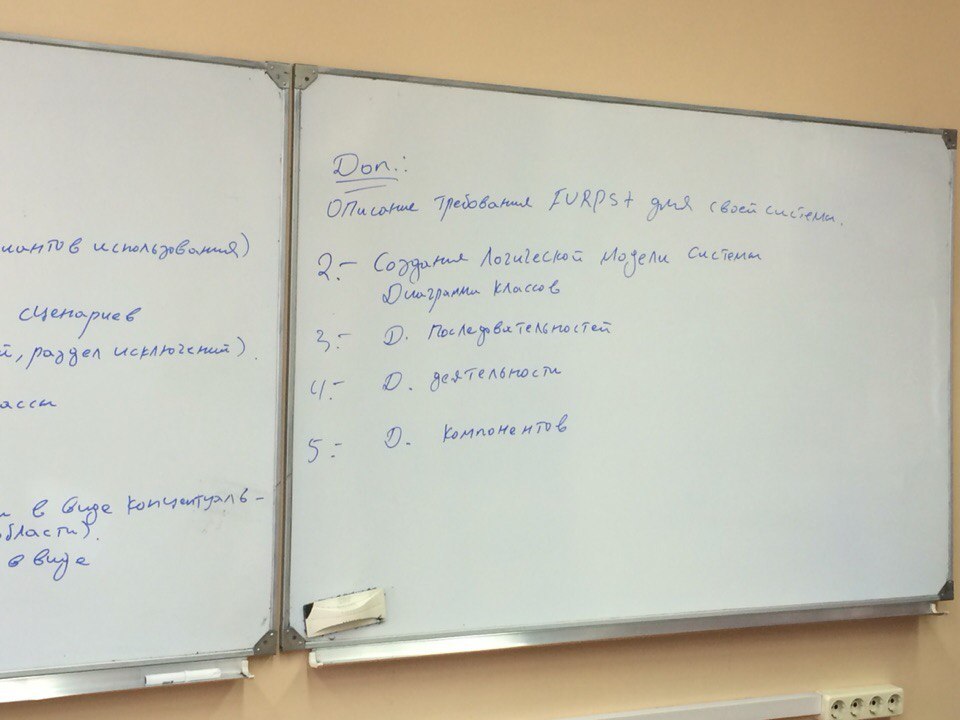 иантов использования)
сценариев
й, раздел исключений).
ассы
и в виде концептуаль-
области).
в виде
Доп.:
Описание требования FURPS+ для своей системы.
2:- Создания логической модели системы
Диаграмма классов
3:- D. последовательностей
4:- D. деятельности
5:- D. компонентов